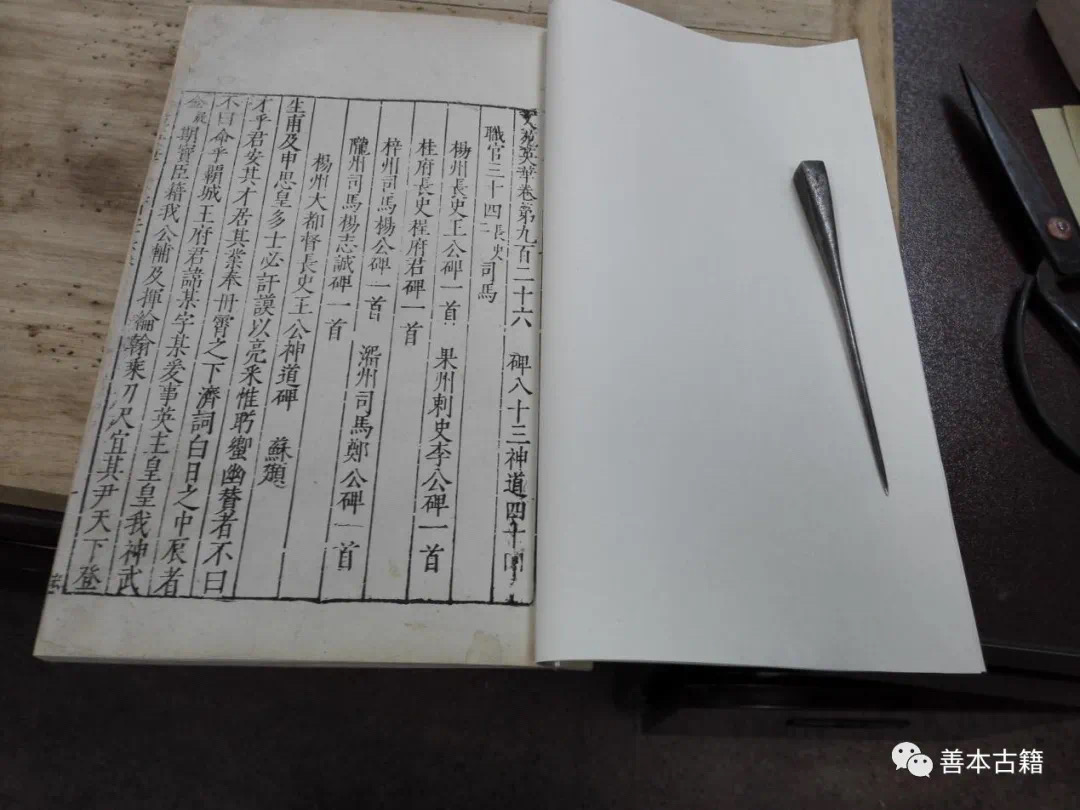 文苑英華卷第九百二十六 碑八十三神道四十四
職官三十四長史二司馬
楊州長史王公碑一首 果州刺史李公碑一首
桂府長史程府君碑一首
梓州司馬楊公碑一首 潞州司馬鄭公碑一首
隴州司馬楊志誠碑一首
楊州大都督長史王公神道碑 蘇頲
生甫及申思皇多士必訏謨以亮采惟肹蠁幽贊者不曰
才乎君安其才居其業奉冊霄之下濟詞白日之中扆者
不曰命乎覇城王府君諱某字某爰事英主皇皇我神武
期實臣籍我公輔及揮綸翰乘刀尺宜其尹天下登
善本古籍